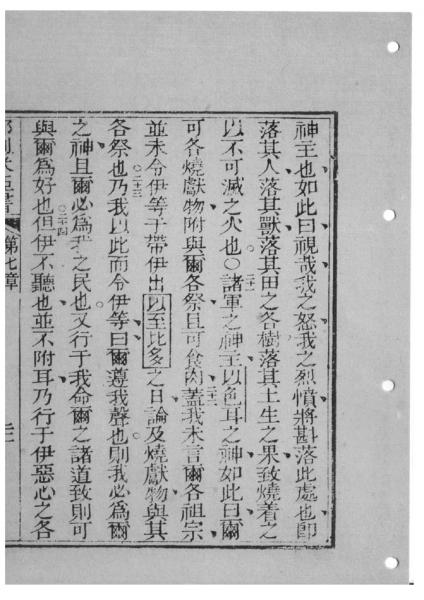 神主也如此曰視哉我之怒我之烈憤將斟落此處也卽
落其人落其獸落其田之各樹落其土生之果致燒着之
以不可滅之火也〇二十一諸軍之神主以色耳之神如此曰爾
可各燒獻物附與爾各祭且可食肉二十二蓋我未言爾各祖宗
並未令伊等于帶伊出以至比多之日論及燒獻物與其
各祭也二十三乃我以此而令伊等曰爾遵我聲也則我必爲爾
之神且爾必爲我之民也又行于我命爾之諸道致則可
與爾爲好也二十四但伊不聽也並不附耳乃行于伊惡心之各
第七章